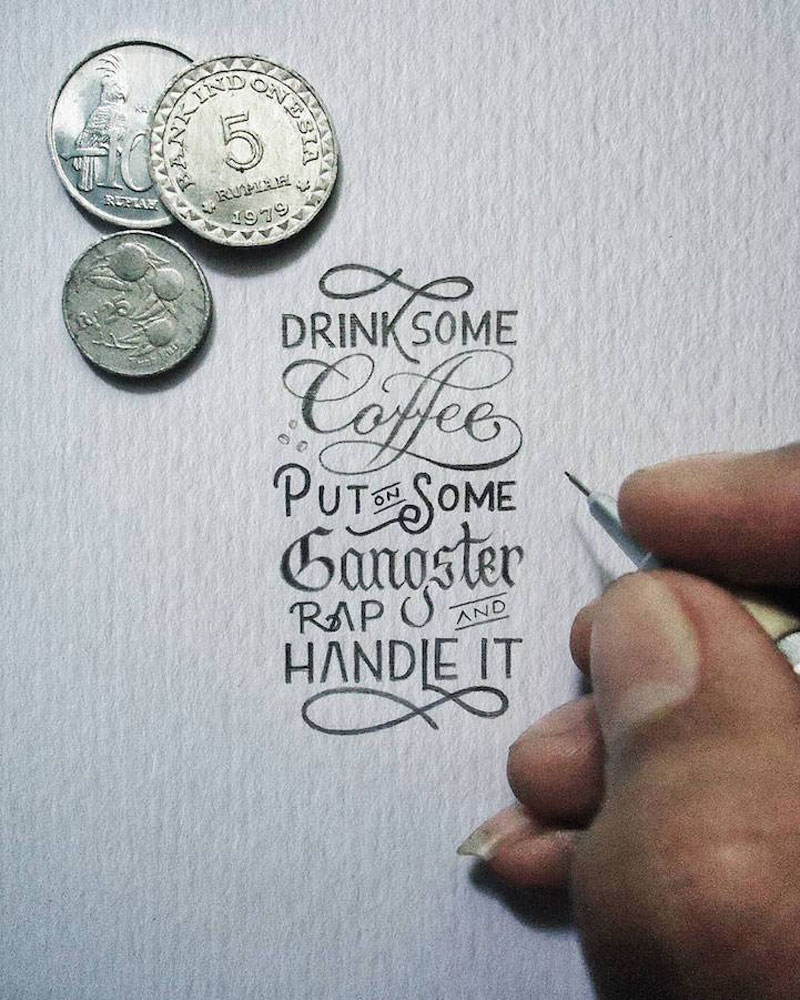 BANK INDONESIA
5
RUPIAH
1979
RUPIAH
DRINK SOME
Coffee
PUT ON SOME
Gangster
RAP AND
HANDLE IT